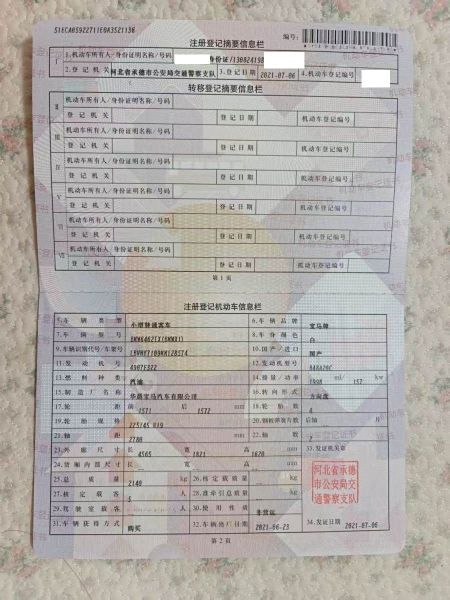 S1ECA0S922711E0A3S21136
注册登记摘要信息栏
编号:
I
1.机动车所有人/身份证明名称/号码 身份证/130824198
2.登记机关 河北省承德市公安局交通警察支队 3.登记日期 2021-07-06 4.机动车登记编号
转移登记摘要信息栏
II 机动车所有人/身份证明名称/号码
登记机关 登记日期 机动车登记编号
III 机动车所有人/身份证明名称/号码
登记机关 登记日期 机动车登记编号
IV 机动车所有人/身份证明名称/号码
登记机关 登记日期 机动车登记编号
V 机动车所有人/身份证明名称/号码
登记机关 登记日期 机动车登记编号
VI 机动车所有人/身份证明名称/号码
登记机关 登记日期 机动车登记编号
VII 机动车所有人/身份证明名称/号码
登记机关 登记日期 机动车登记编号
第1页
注册登记机动车信息栏
5.车辆类型 小型普通客车 6.车辆品牌 宝马牌
7.车辆型号 BMW6462TX(BMWX1) 8.车身颜色 白
9.车辆识别代号/车架号 10.国产/进口 国产
11.发动机号 12.发动机型号
13.燃料种类 汽油 14.排量/功率 1998 ml/ kw
15.制造厂名称 华晨宝马汽车有限公司 16.转向形式 方向盘
17.轮距 前 1571 后 1572 mm 18.轮胎数 4
19.轮胎规格 225/45 R19 20.钢板弹簧片数 后轴 片
21.轴距 2780 mm 22.轴数 2
23.外廓尺寸 长 4565 宽 1821 高 1620 mm 33.发证机关章
24.货厢内部尺寸 长 宽 高 mm
25.总质量 2140 kg 26.核定载质量 kg
27.核定载客 5 人 28.准牵引总质量 kg
29.驾驶室载客 人 30.使用性质 非营运
31.车辆获得方式 购买 32.车辆出厂日期 2021-06-23 34.发证日期 2021-07-06
河北省承德
市公安局交
通警察支队
第2页